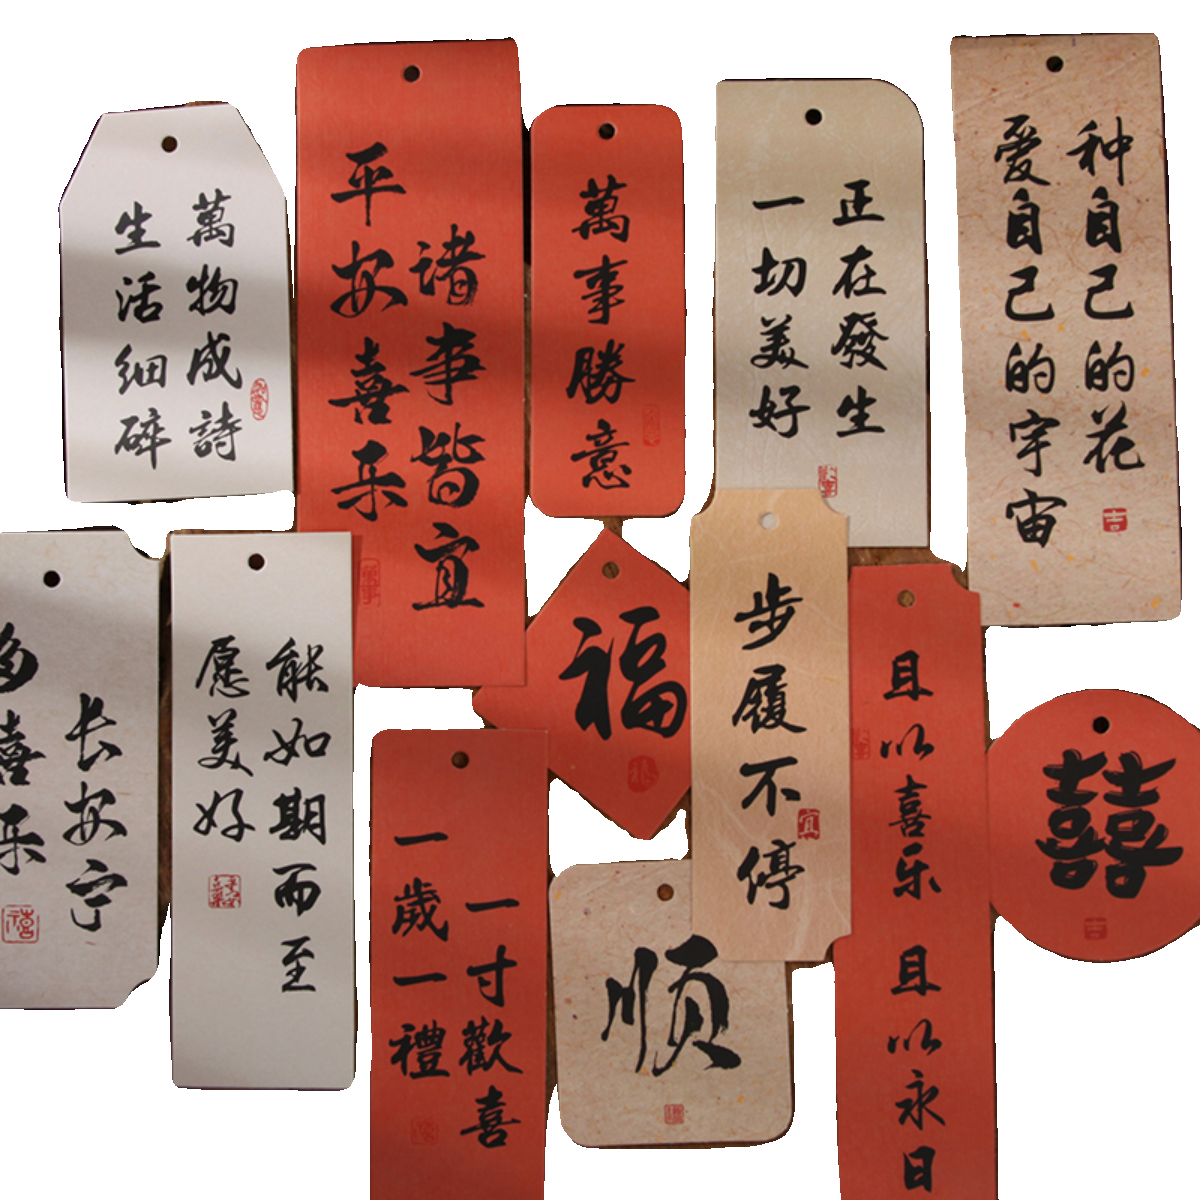 生活细碎
萬物成詩
平安喜乐
诸事皆宜
萬事勝意
一切美好
正在發生
种自己的花
爱自己的宇宙
吉
多喜乐
长安宁
禧
愿美好
能如期而至
福
步履不停
宜
且以喜乐 且以永日
囍
吉
一歲一禮
一寸歡喜
顺